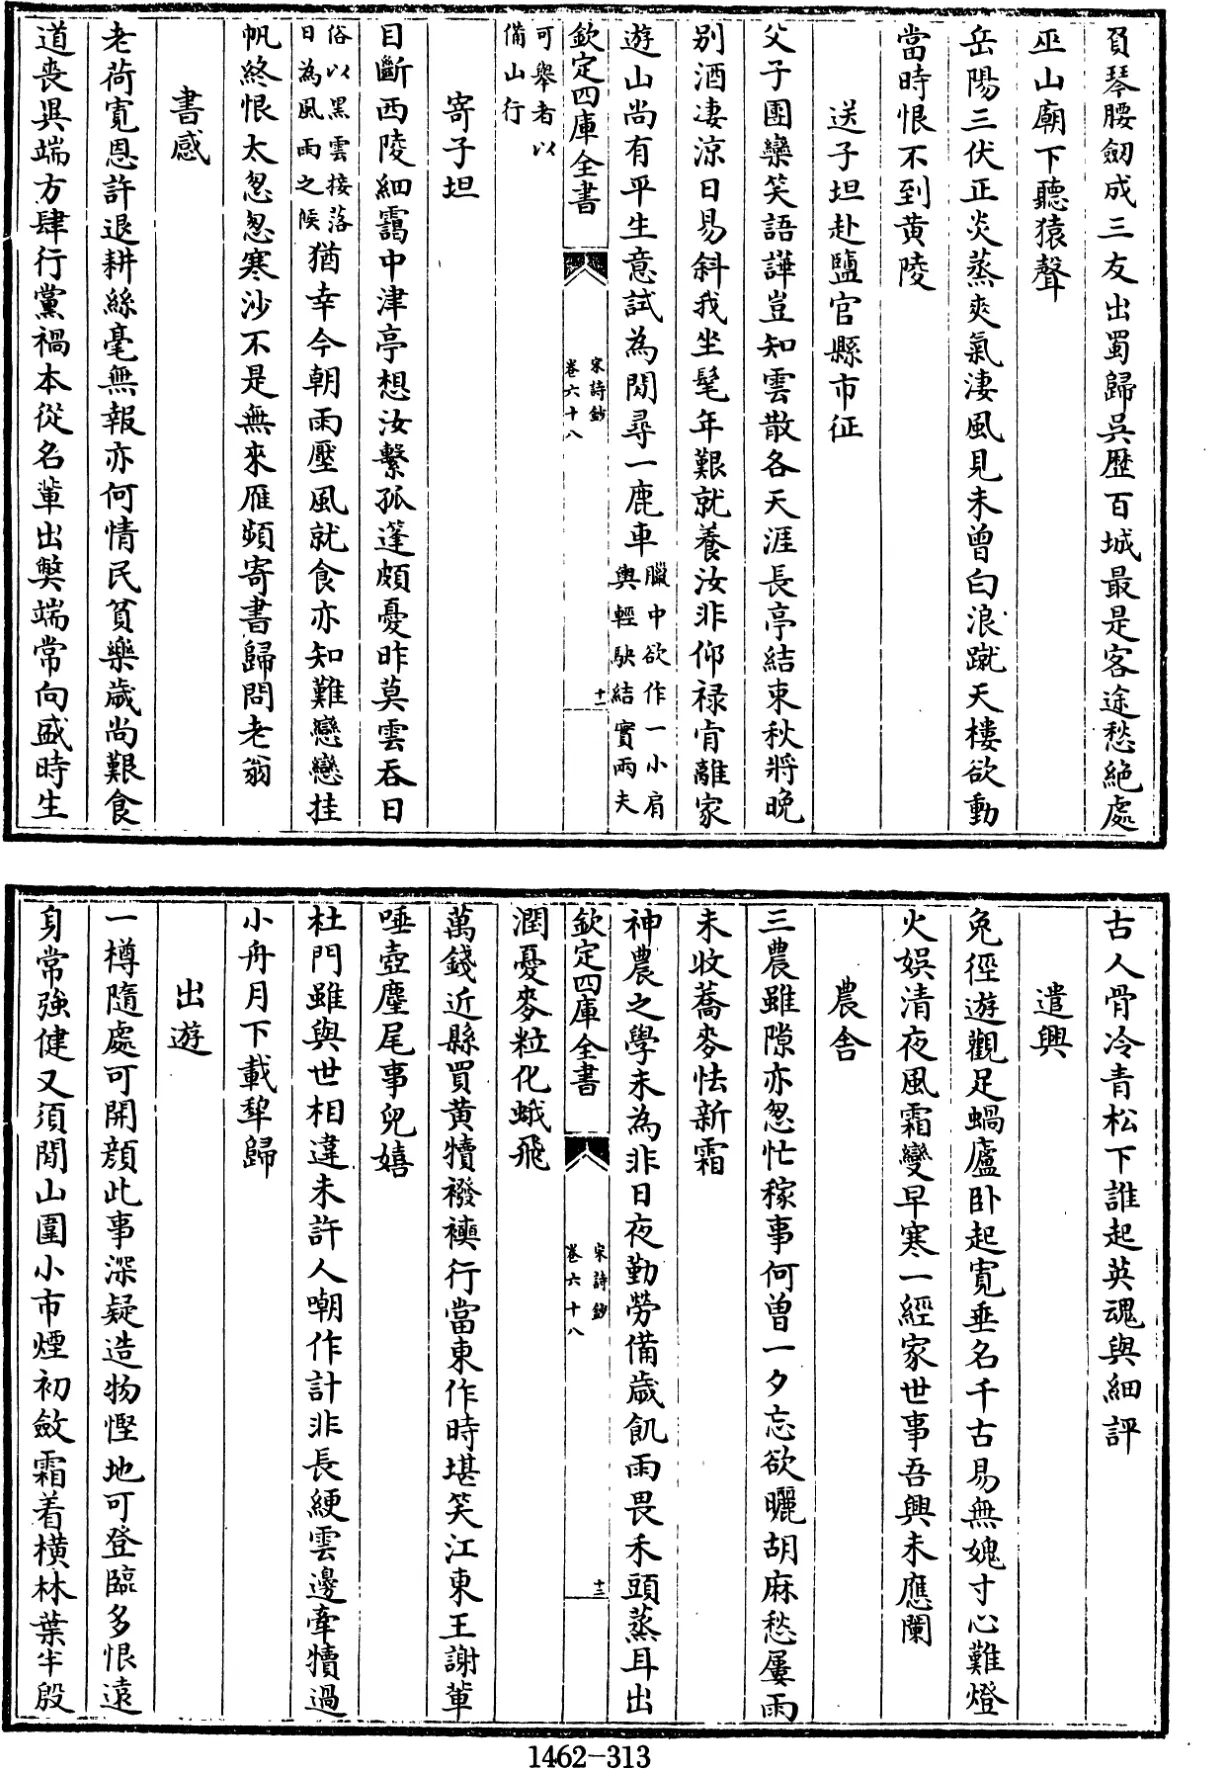 負琴腰劒成三友出蜀歸吳歷百城最是客途愁絶處
巫山廟下聽猿聲
岳陽三伏正炎蒸爽氣淒風見未曽白浪蹴天樓欲動
當時恨不到黄陵
送子坦赴鹽官縣市征
父子團欒笑語譁豈知雲散各天涯長亭結束秋將晩
别酒凄涼日易斜我坐髦年艱就養汝非仰禄肯離家
遊山尚有平生意試為閒尋一鹿車
臘中欲作一小肩
輿輕駃結實兩夫
欽定四庫全書
宋詩鈔
卷六十八
十二
可舉者以
備山行
寄子坦
目斷西陵細靄中津亭想汝繫孤蓬頗憂昨莫雲吞日
俗以黑雲接落
日為風雨之候
猶幸今朝雨壓風就食亦知難戀戀挂
帆終恨太怱怱寒沙不是無來雁頻寄書歸問老翁
書感
老荷寛恩許退耕絲毫無報亦何情民貧樂歲尚艱食
道喪異端方肆行黨禍本從名輩出弊端常向盛時生
古人骨冷青松下誰起英魂與細評
遣興
免徑遊觀足蝸廬卧起寛垂名千古易無媿寸心難燈
火娯清夜風霜變早寒一經家世事吾興未應闌
農舎
三農雖隙亦怱忙稼事何曽一夕忘欲曬胡麻愁屢雨
未收蕎麥怯新霜
神農之學未為非日夜勤勞備歲飢雨畏禾頭蒸耳出
欽定四庫全書
宋詩鈔
卷六十八
十三
潤憂麥粒化蛾飛
萬錢近縣買黄犢襏襫行當東作時堪笑江東王謝輩
唾壺麈尾事兒嬉
杜門雖與世相違未許人嘲作計非長綆雲邊牽犢過
小舟月下載犂歸
出遊
一樽隨處可開顔此事深疑造物慳地可登臨多恨遠
身常強健又須閒山圍小市煙初斂霜着横林葉半殷
1462-313